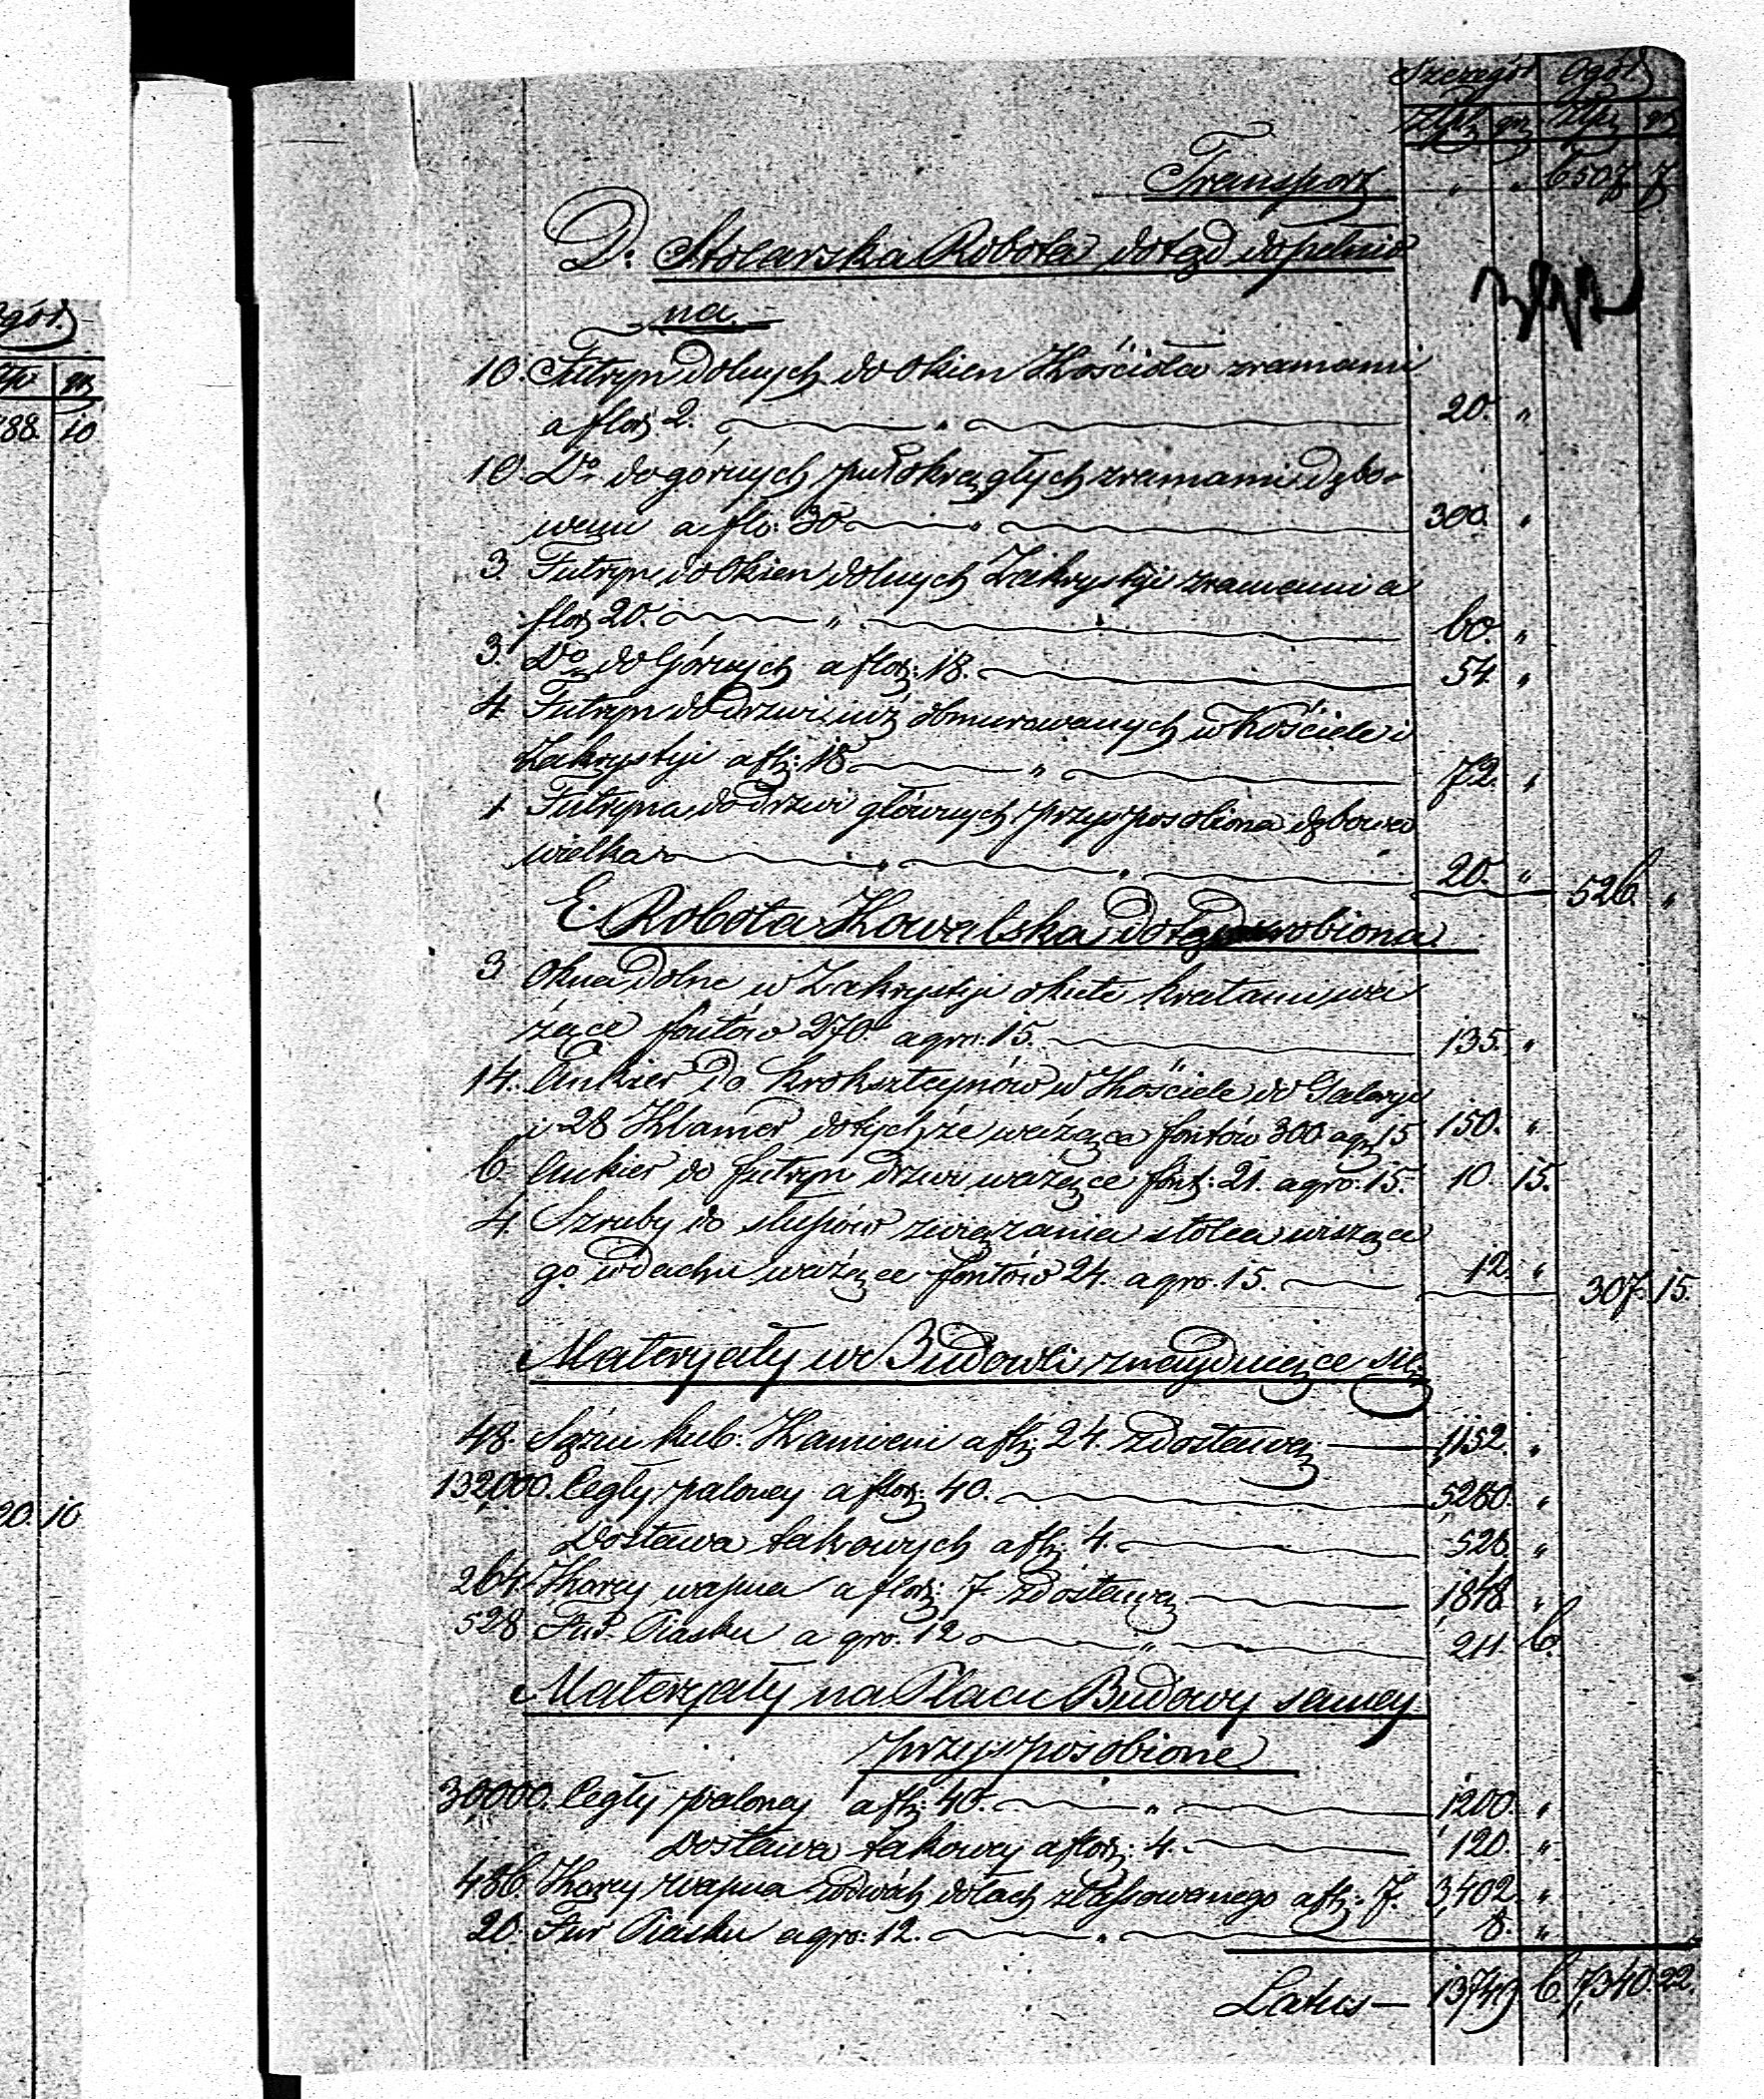 Szczegół Ogół
Złp. gr. Złp. gr.
Transport " " 6507. 7.
D. Stolarska Robota dotąd dopełnio
na.
10. Futryn dolnych do okien Kościoła z ramami
a flor. 2. " 20. "
10. Do do górnych pułokrągłych z ramami dębo-
wemi a flo: 30 " 300. "
3. Futryn do Okien dolnych Zakrystyi z ramami a
flor 20. " 60. "
3. Do do Górnych a flor: 18. 54 "
4. Futryn do drzwi już obmurowanych w Kościele i
Zakrystyi a fl: 18 " 72. "
1. Futryna do drzwi głównych przysposobiona dębowa
wielka " " 20. " 526. "
E. Robota Kowalska dotąd urobiona
3 Okna dolne w Zakrystyi okute kratami wa
żące fontów 270. a gro: 15. 135. "
14. Ankier do kroksztynów w Kościele do Galeryi
i 28 Klamer do tychże ważące fontów 300 a gr 15 150. "
6. Ankier do futryn drzwi ważące font: 21. a gro: 15. 10. 15.
4. Szruby do słupów związania stolca wiszące
go w dachu ważące fontów 24. a gro. 15. 12. " 307. 15.
Materyały w Budowli znayduiące się
48. Sążni kub. Kamieni a fl: 24. z dostawą 1152. "
132,000. Cegły paloney a flor: 40. 5280. "
Dostawa takowych a fl: 4. 528. "
264. Korcy wapna a flor: 7 z dostawą 1848. "
528 Fur Piasku a gro. 12 " 211. 6.
Materyały na Placu Budowy samey
przysposobione
30,000. Cegły paloney a fl: 40. " 1200. "
Dostawa takowey a flor: 4. 120. "
486. Korcy Wapna w dwóch dołach zlasowanego a fl: 7. 3,402. "
20. Fur Piasku a gro: 12. " 8. "
Latus — 13749 6. 7,340. 22.
gół.
gr
88. 10
20. 10